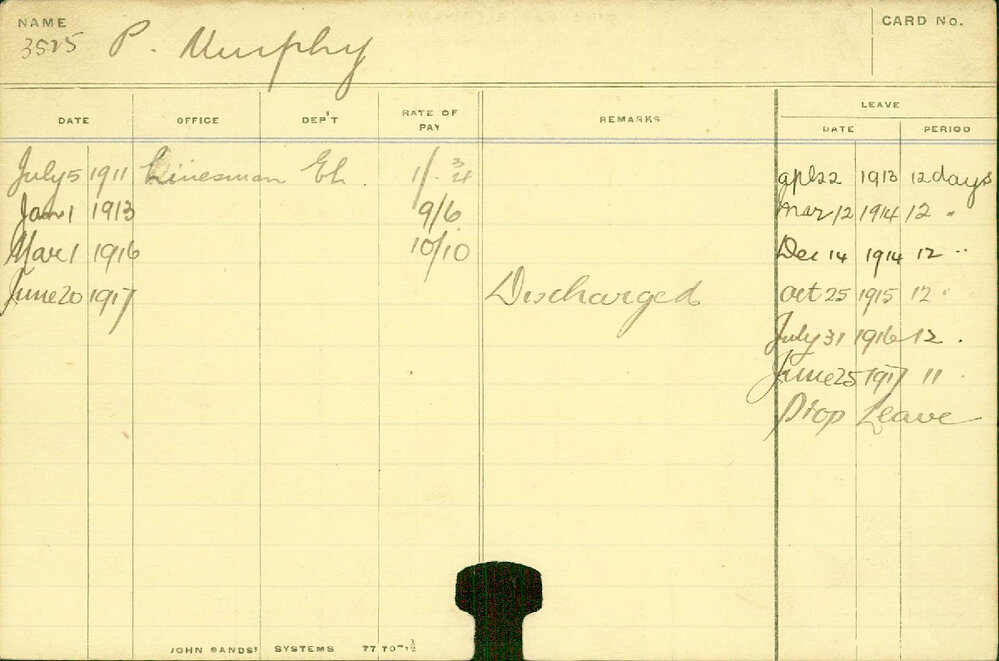 NAME CARD No.
3525 P. Murphy
LEAVE
DATE OFFICE DEP'T RATE OF PAY REMARKS DATE PERIOD
July 5 1911 Linesman Eh. 1/. 3/4 apl 22 1913 12 days
Jan 1 1913 9/6 Mar 12 1914 12 "
Mar 1 1916 10/10 Dec 14 1914 12 "
June 20 1917 Discharged Oct 25 1915 12 "
July 31 1916 12 .
June 25 1917 11 .
Prop Leave
JOHN SANDS' SYSTEMS 77 70